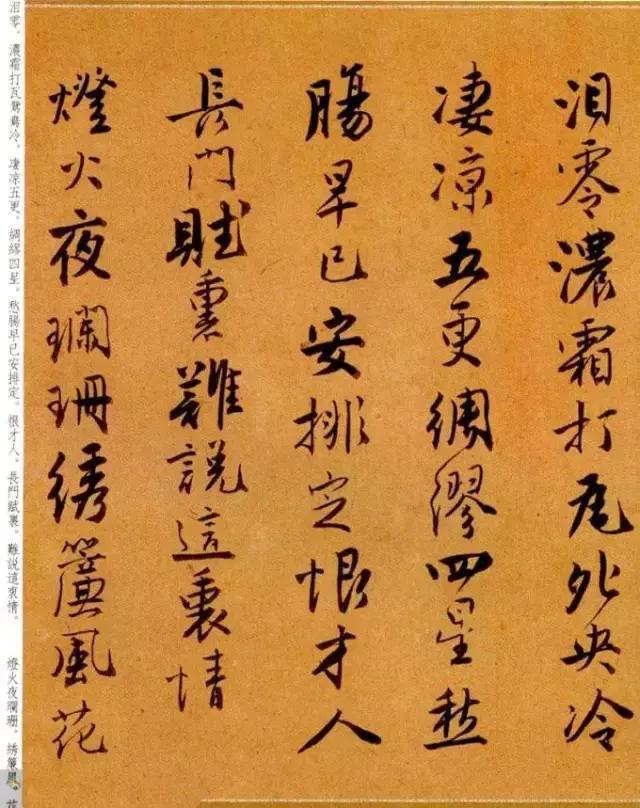 泪零濃霜打瓦夗央冷
凄凉五更綢繆四星愁
腸早已安排定恨才人
長門賦裏難説這衷情
燈火夜瓓珊綉簾風花
泪零。濃霜打瓦鴛鴦冷。凄凉五更。綢繆四星。愁腸早已安排定。恨才人。長門賦裏。難説這衷情。 燈火夜瓓珊。綉簾風。